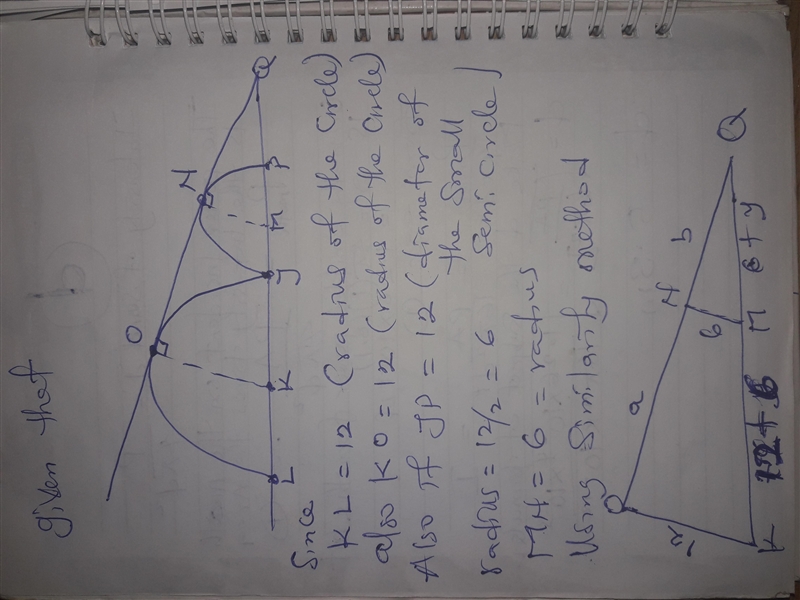 given that
O
N
Q
L
K
J
M
P
Since
KL = 12 (radius of the circle)
also KO = 12 (radius of the circle)
Also if JP = 12 (diameter of
the small
semi circle)
radius = 12/2 = 6
MN = 6 = radius
Using similarity method
O
a
N
b
Q
12
6
K
12 + 6
M
6 + y